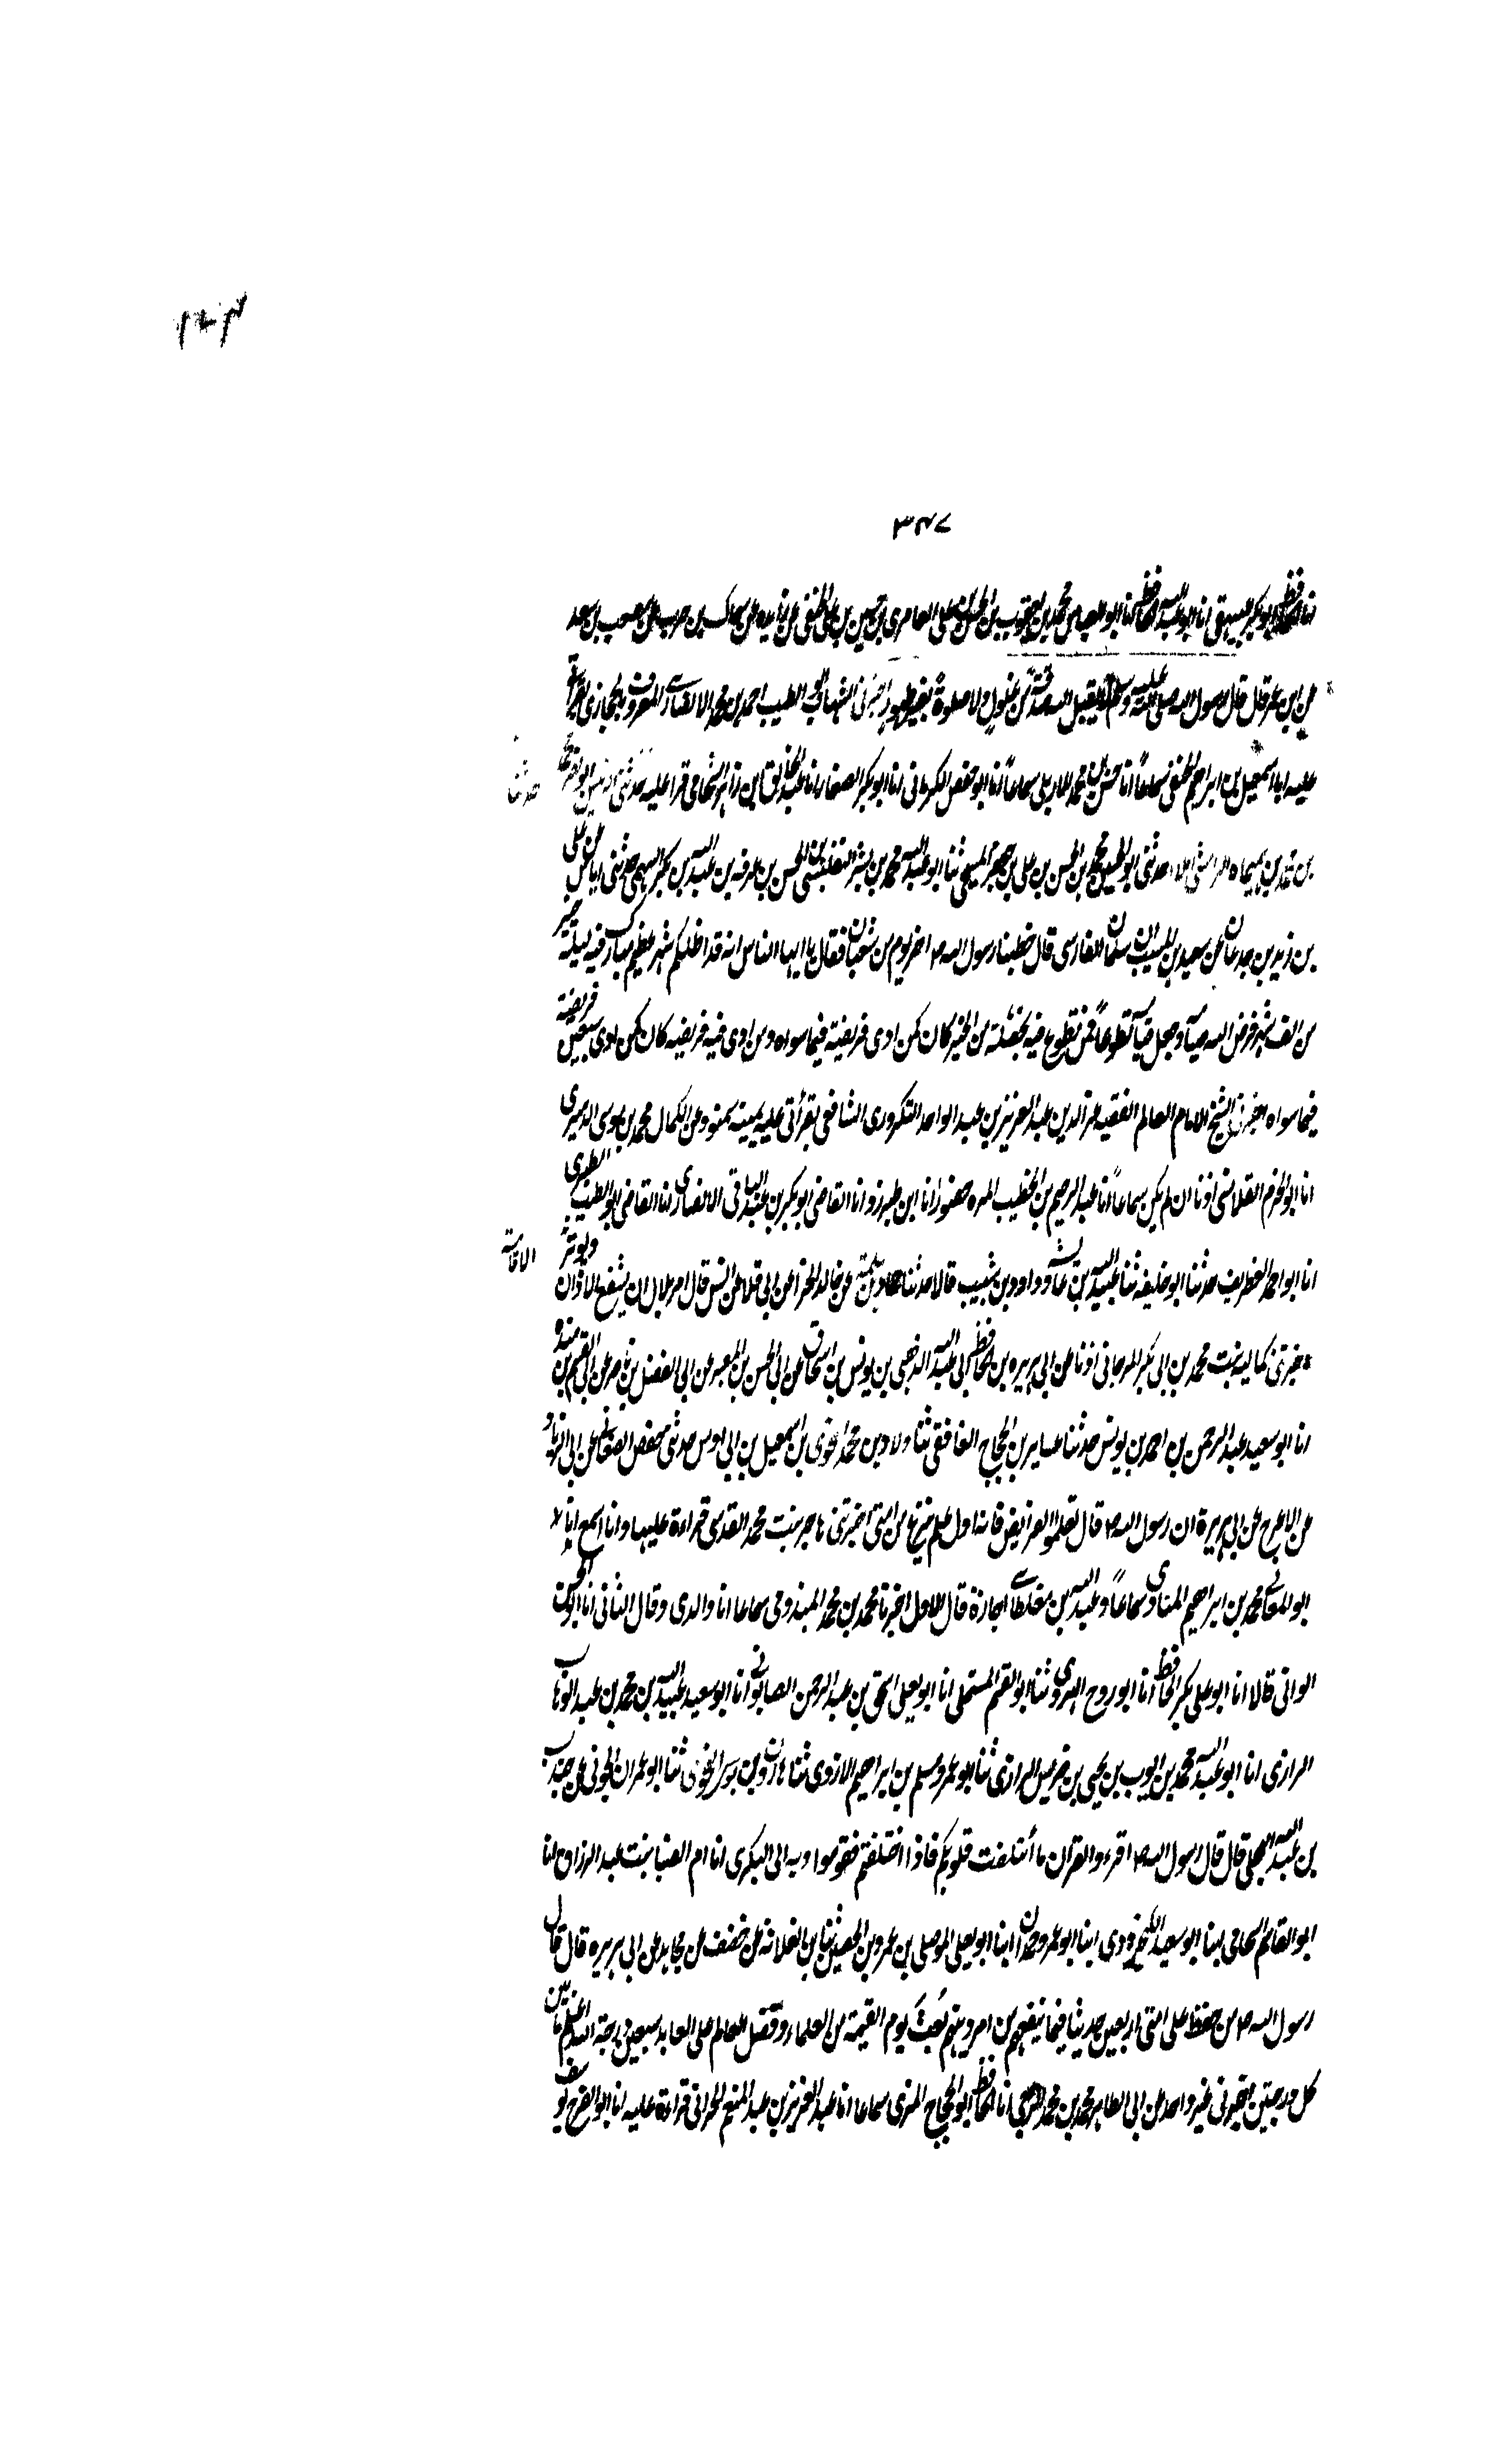 ٣٤٧
انا الحافظ ابوبكر البيهقى انا ابو عبد الله الحافظ انا ابو العباس محمد بن يعقوب بن الحسن بن على العامرى بن حسين بن على الجعفى عن زائده عن سماك بن حرب عن مصعب بن سعد
عن ابن عمر قال قال رسول الله صلى الله عليه وسلم لا يقبل الله صدقة من غلول ولا صلوة بغير طهور اخبرنى الشهاب ابو الطيب احمد بن محمد الانصارى المعروف بالحجازى بقراءتى
عليه انا اسمعيل بن ابراهيم الحنفى سماعاً انا محمد الاربلى سماعاً انا ابو حفص الكرمانى انا ابوبكر الصفار انا عبد الخالق بن زاهر الشحامى قرا عليه
حدثنا
حدثنى ابو الحسين محمد بن الحسن بن على بن المسيحى ثنا ابو عبد الله محمد بن بشر الحسن بن عرفه بن عبد الله بن بكر السهمى حدثنى اياس عن على
بن زيد بن جدعان عن سعيد بن المسيب ان سلمان الفارسى قال خطبنا رسول الله ص اخر يوم من شعبان فقال يا ايها الناس انه قد اظلكم شهر عظيم مبارك فيه ليلة خير
من الف شهر فرض الله صيامه وجعل قيامه تطوعاً فمن تطوع فيه بخصلة من الخير كان كمن ادى فريضة فيما سواه ومن ادى فيه فريضه كان كمن ادى سبعين فريضة
فيما سواه اخبرنى الشيخ الامام العالم الفقيه عز الدين عبد العزيز بن عبد الواحد التكرورى الشافعى بقرأتى عليه بمنزله بسمنود عن الكمال محمد بن موسى الدميرى
انا ابو الحرم القلانسى اذنا ان لم يكن سماعاً انا عبد الرحيم بن الخطيب المزه حضورا انا ابن طبرزد انا القاضى ابوبكر بن عبد الباقى الانصارى انا القاضى ابو الطيب الطبرى
انا ابو احمد الغطريف حدثنا ابو خليفه ثنا عبيد الله بن عائشه وداود بن شبيب قالا حدثنا حماد بن سلمة عن خالد الحذاء عن ابى قلابه عن انس قال امر بلال ان يشفع الاذان ويوتر
الاقامة
اخبرتنى كماليه بنت محمد بن ابى بكر المرجانى اذنا عن ابى هريره بن الحافظ ابى عبد الله الذهبى بن يونس بن اسحاق عن ابى الحسن بن المقير عن ابى الفضل بن ناصر عن ابى القسم بن مندو
انا ابو سعيد عبد الرحمن بن احمد بن يونس حدثنا بن الحجاج الغافقى ثنا ولاد بن محمد بن اسمعيل بن ابى اويس حدثنى حفص عن ابى الزناد
عن الاعرج عن ابى هريرة ان رسول الله ص قال تعلموا الفرايض فانه اول علم ينزع من امتى اخبرتنى هاجر بنت محمد القدسى قراءة عليها وانا اسمع انا
ابو المعالى محمد بن ابراهيم المناوى سماعاً وعبد الله بن مغلطاى اجازة قال الاول اخبرنا محمد بن محمد الميدومى سماعا انا والدى وقال الثانى انا ابو الحسن
الوانى قالا انا ابو على بكر الحافظ انا ابو روح الهروى ثنا ابو القسم المستملى انا ابو يعلى اسحق بن عبد الرحمن الصابونى انا ابو سعيد عبد الله بن محمد بن عبد الوهاب
الرازى انا ابو عبد الله محمد بن ايوب بن يحيى بن ضريس الرازى ثنا ابو عمرو مسلم بن ابراهيم الازدى ثنا هارون بن موسى النحوى ثنا ابو عمران الجونى عن جندب
بن عبد الله البجلى قال قال رسول الله ص اقرءو القران ما ائتلفت قلوبكم فاذا اختلفتم فقوموا وبه الى البكرى انا ام الضيا بنت عبد الرزاق انا
ابو القاسم الشحامى ابنا ابو سعيد الكنجرودى ابنا ابو عمرو بن حمدان ابنا ابو يعلى الموصلى بن عمرو بن الحصين ثنا بن العلاثه عن خصيف عن مجاهد عن ابى هريره قال قال
رسول الله ص من حفظ على امتى اربعين حديثا فيما ينفعهم من امر دينهم بُعث يوم القيمة من العلماء وفضل العالم على العابد سبعين درجة الله اعلم ما بين
كل درجتين اخبرنى غير واحد عن ابى الطاهر محمد بن محمد الربعى انا الحافظ ابو الحجاج المزى سماعا انا عبد العزيز بن عبد المنعم الحرانى قراءة عليه انا ابو الفرح يوسف